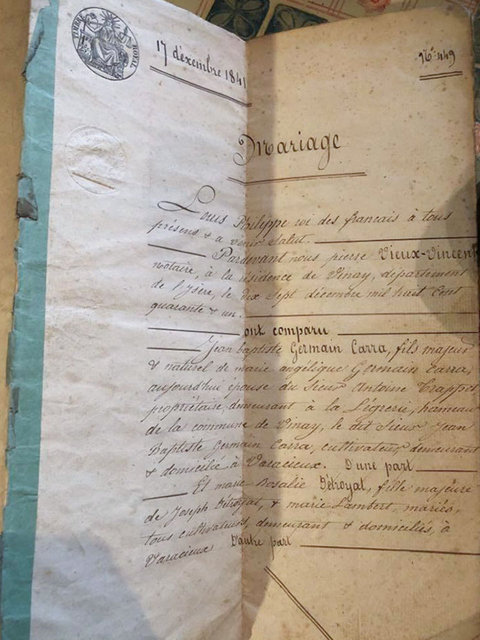 TIMBRE ROYAL
17 dexembre 1841
N° 449
Mariage
Louis Philippe roi des français à tous
présens & a venir salut.
Pardevant nous pierre Vieux-Vincent
notaire, à la résidence de Vinay, département
de l'Isère, le dix sept décembre mil huit cent
quarante & un.
ont comparu
Jean baptiste Germain Carra, fils majeur
& naturel de marie angélique Germain Carra,
aujourd'hui épouse du Sieur Antoine Crappet
propriétaire demeurant à la hameau
de la commune de Vinay, le dit Sieur Jean
Baptiste Germain Carra, cultivateur demeurant
& domicilié à Varacieux. D'une part
Et marie Rosalie Détroyat, fille majeure
de Joseph Détroyat, & marie Lambert, mariés,
tous cultivateurs, demeurant & domiciliés, à
Varacieux D'autre part